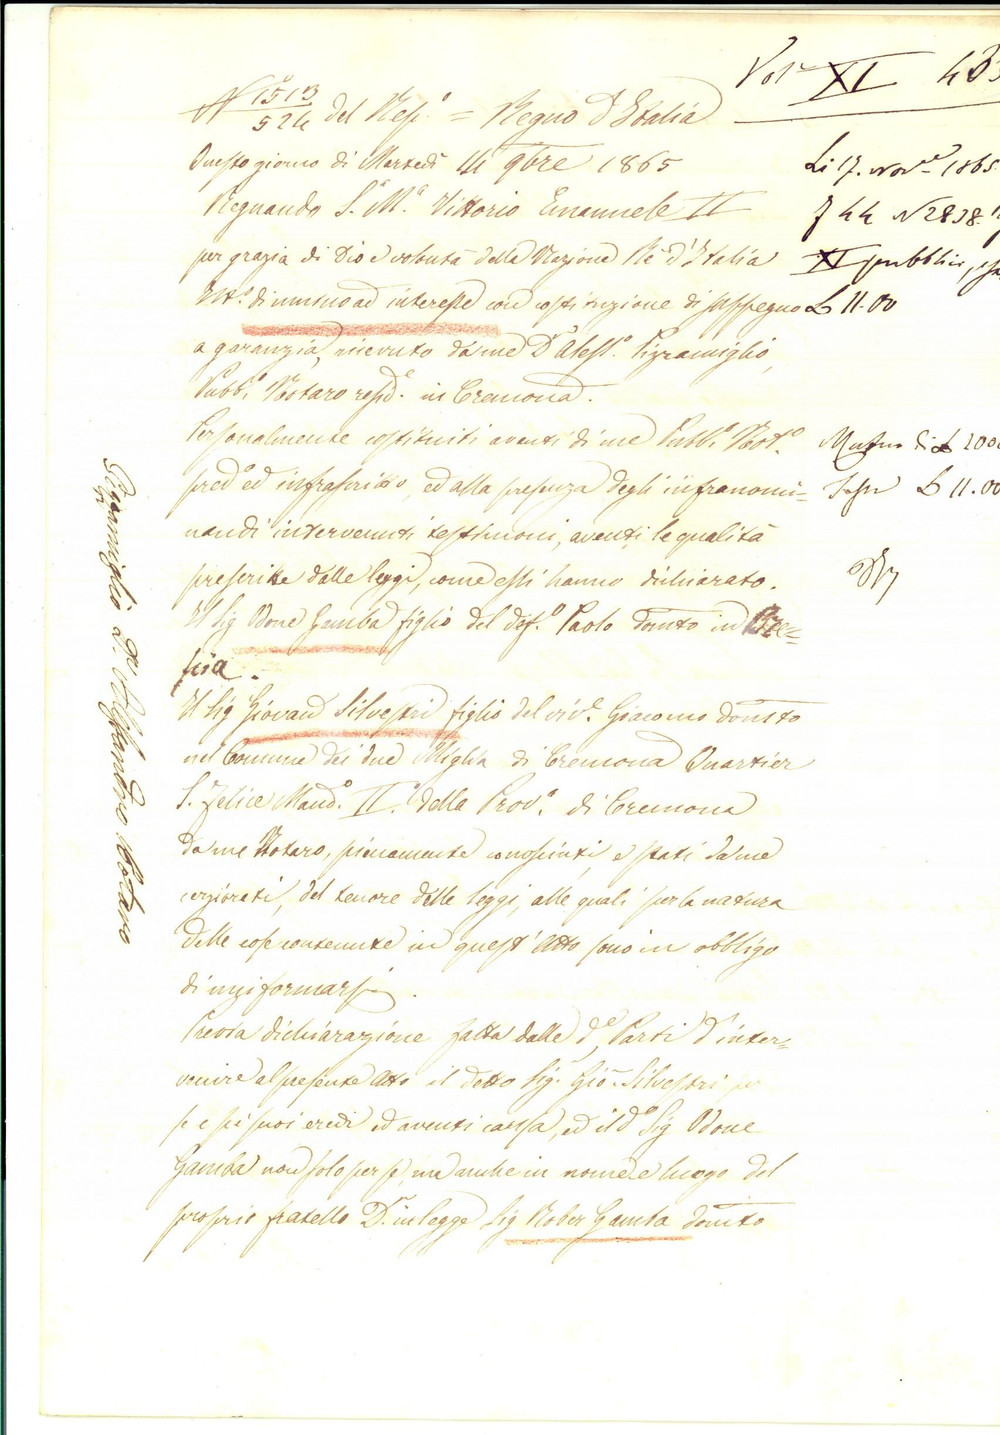 Vol XI 433
N° 1513/524 del Rep.° = Regno d'Italia
Questo giorno di Martedì 14 9bre 1865
Regnando S.a M.a Vittorio Emanuele II
per grazia di Dio e volontà della Nazione Rè d'Italia
Ist.° di mutuo ad interesse con costituzione di sup pegno
a garanzia, ricevuto da me D.r Aless.° Pizzamiglio,
Pubb.° Notaro resid.e in Cremona.
Personalmente costituiti aventi di me Pubb.° Not.°
pred.° ed infrascritto, ed alla presenza degli infranomi=
nandi intervenuti testimoni, aventi le qualità
prescritte dalle leggi, come essi hanno dichiarato.
Il Sig Odone Gamba figlio del def.° Paolo domto in Bre=
scia.
Il Sig Giovanni Silvestri figlio del viv.e Giacomo domto
nel Comune dei due Miglia di Cremona Quartier
S. Felice Mand.° II.° della Prov.a di Cremona
da me Notaro, pienamente conosciuti, e stati da me
cerziorati, del tenore delle leggi, alle quali per la natura
delle cose contenute in quest'atto sono in obbligo
di uniformarsi.
Previa dichiarazione fatta dalle d.e Parti d'inter=
venire al presente atto il detto Sig.r Gio. Silvestri per
se e pei suoi eredi ed aventi causa, ed il d.° Sig Odone
Gamba non solo per se, ma anche in nome e luogo del
proprio fratello D.r in legge Sig Rober Gamba domto
Li 17. nov.e 1865.
f 44 N 2838
XI pubblici,
L 11.00
Mutuo di L 2000
Tassa L 11.00
Pizzamiglio D.r Alessandro Notaro